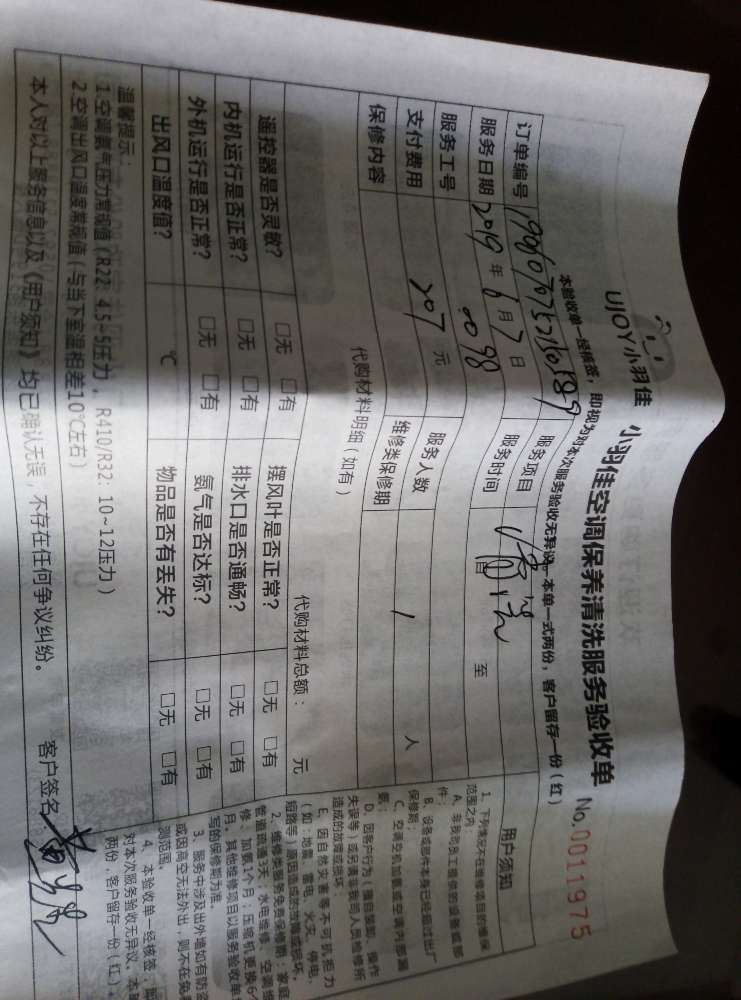 UJOY小羽佳
小羽佳空调保养清洗服务验收单 No.0011975
本验收单一经核签，即视为对本次服务验收无异议，本单一式两份，客户留存一份（红）
订单编号 服务项目
服务日期 2019 年 6 月 7 日 服务时间 至
服务工号 0098 服务人数 1 人
支付费用 207 元 维修类保修期
保修内容
代购材料明细（如有） 代购材料总额： 元
遥控器是否灵敏？ □无 □有 摆风叶是否正常？ □无 □有
内机运行是否正常？ □无 □有 排水口是否通畅？ □无 □有
外机运行是否正常？ □无 □有 氨气是否达标？ □无 □有
出风口温度值？ ℃ 物品是否有丢失？ □无 □有
温馨提示：
1.空调氨气压力常规值（R22：4.5~5压力，R410/R32：10~12压力）
2.空调出风口温度常规值（与当下室温相差10℃左右）
本人对以上服务信息以及《用户须知》均已确认无误，不存在任何争议纠纷。 客户签名：
用户须知
1、下列情况不在维修项目的维保
范围之内：
A、非我司员工提供的设备或部
件；
B、设备或部件本身已经超过出厂
保修期；
C、空调空机加氨或空调内部漏
氨；
D、因客户行为（擅自装卸、操作
失误等）或另请非我司人员检修所
造成的故障或损坏；
E、因自然灾害等不可抗拒力
（如：地震、雷电、火灾、停电、
短路等）原因造成的故障或损坏。
2、维修类服务免费保修期：家庭
管道疏通3天；水电维修、空调维
修、加氨1个月；压缩机更换6个
月。其他维修项目以服务验收单
写的保修期为准。
3、服务中涉及出外墙如有防盗
或因高空无法外出，则不在免
测范围。
4、本验收单一经核签，即
对本次服务验收无异议。本
两份，客户留存一份（红）。